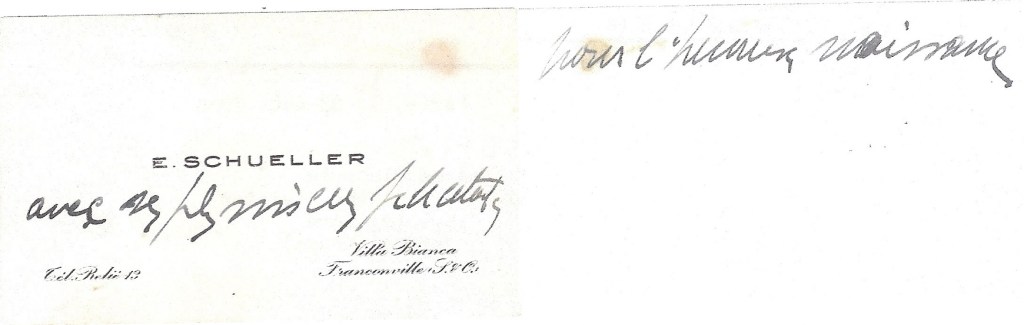 E. SCHUELLER
avec ses plus sincères félicitations
Villa Bianca
Tél. Relié 13
Franconville (S.&O.)
pour l'heureuse naissance